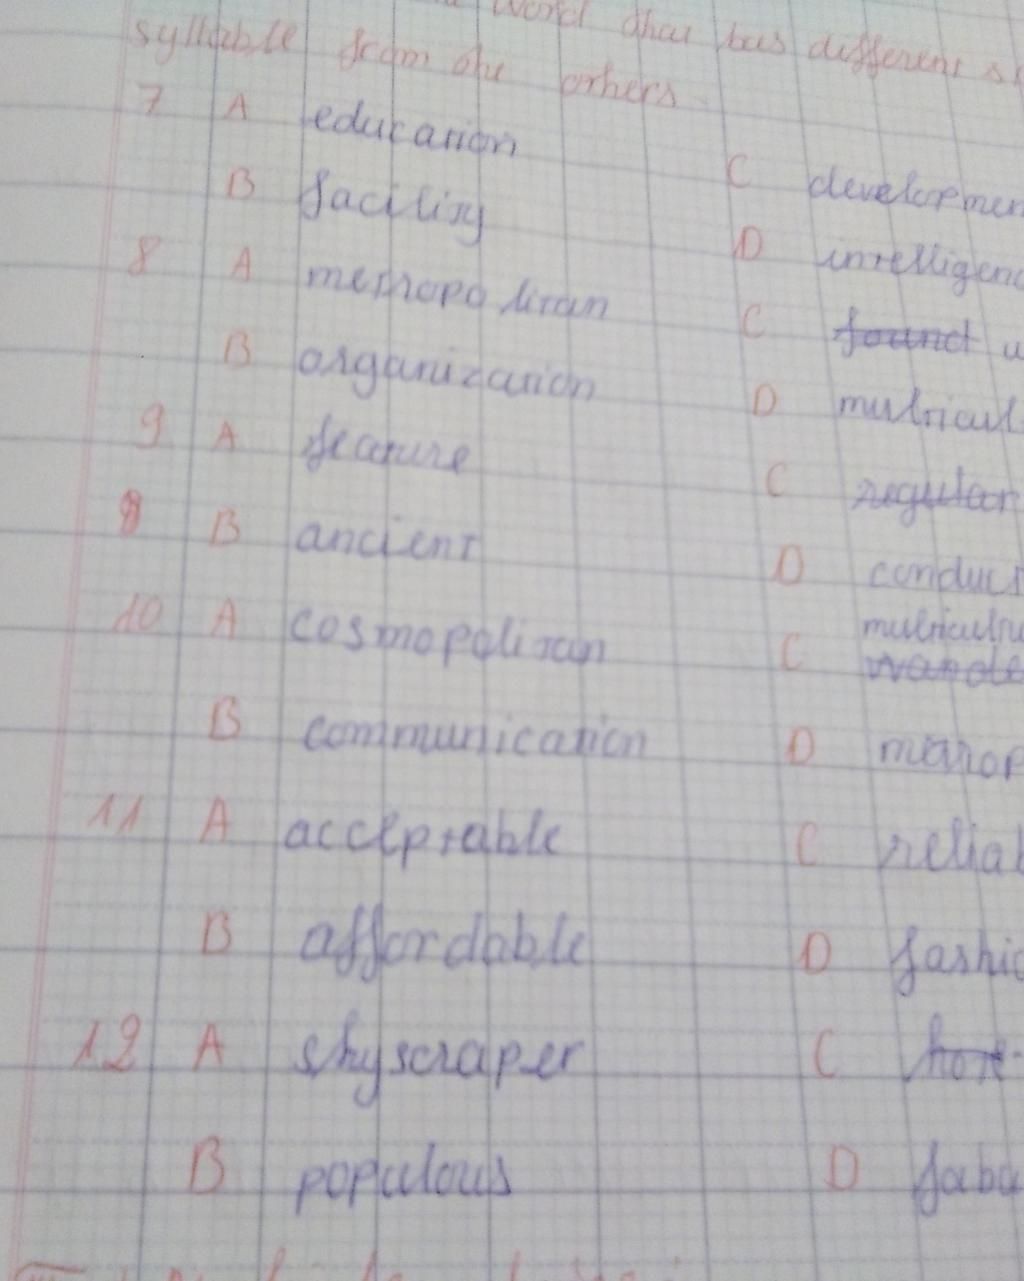 word that has different s
syllable from the others
7 A education
C developmen
B facility
D intelligenc
8 A metropolitan
C found u
B organization
D multicul
9 A feature
C regular
9 B ancient
D conduct
10 A cosmopolitan
C multicultu
B communication
D metrop
11 A acceptable
C reliab
B affordable
D fashio
12 A skyscraper
C
B populous
D fabu